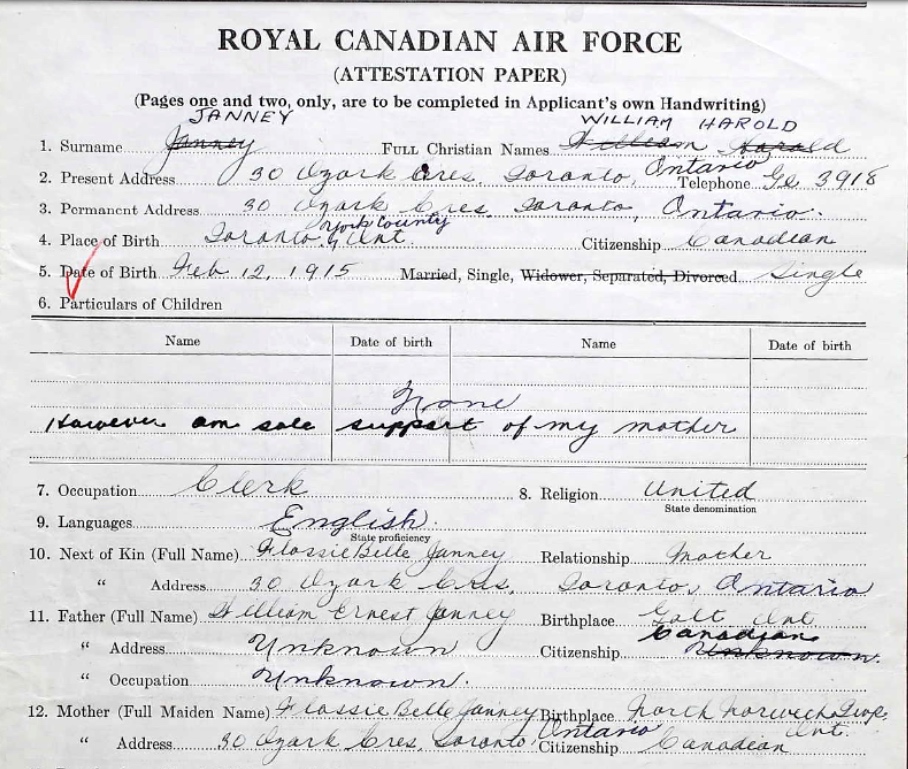 ROYAL CANADIAN AIR FORCE
(ATTESTATION PAPER)
(Pages one and two, only, are to be completed in Applicant's own Handwriting)
JANNEY WILLIAM HAROLD
1. Surname Janney FULL Christian Names William Harold
2. Present Address 30 Ozark Cres. Toronto, Ontario Telephone Ge. 3918
3. Permanent Address 30 Ozark Cres. Toronto, Ontario.
York County
4. Place of Birth Toronto, Ont. Citizenship Canadian
5. Date of Birth Feb 12, 1915 Married, Single, Widower, Separated, Divorced Single
6. Particulars of Children
Name Date of birth Name Date of birth
None
However am sole support of my mother
7. Occupation Clerk 8. Religion United
State denomination
9. Languages English.
State proficiency
10. Next of Kin (Full Name) Flossie Belle Janney Relationship Mother
" Address 30 Ozark Cres, Toronto, Ontario
11. Father (Full Name) William Ernest Janney Birthplace Galt Ont
Canadian
" Address Unknown Citizenship Unknown.
" Occupation Unknown.
12. Mother (Full Maiden Name) Flossie Belle Janney Birthplace North Norwich Twp. Ont.
" Address 30 Ozark Cres, Toronto, Ontario Citizenship Canadian